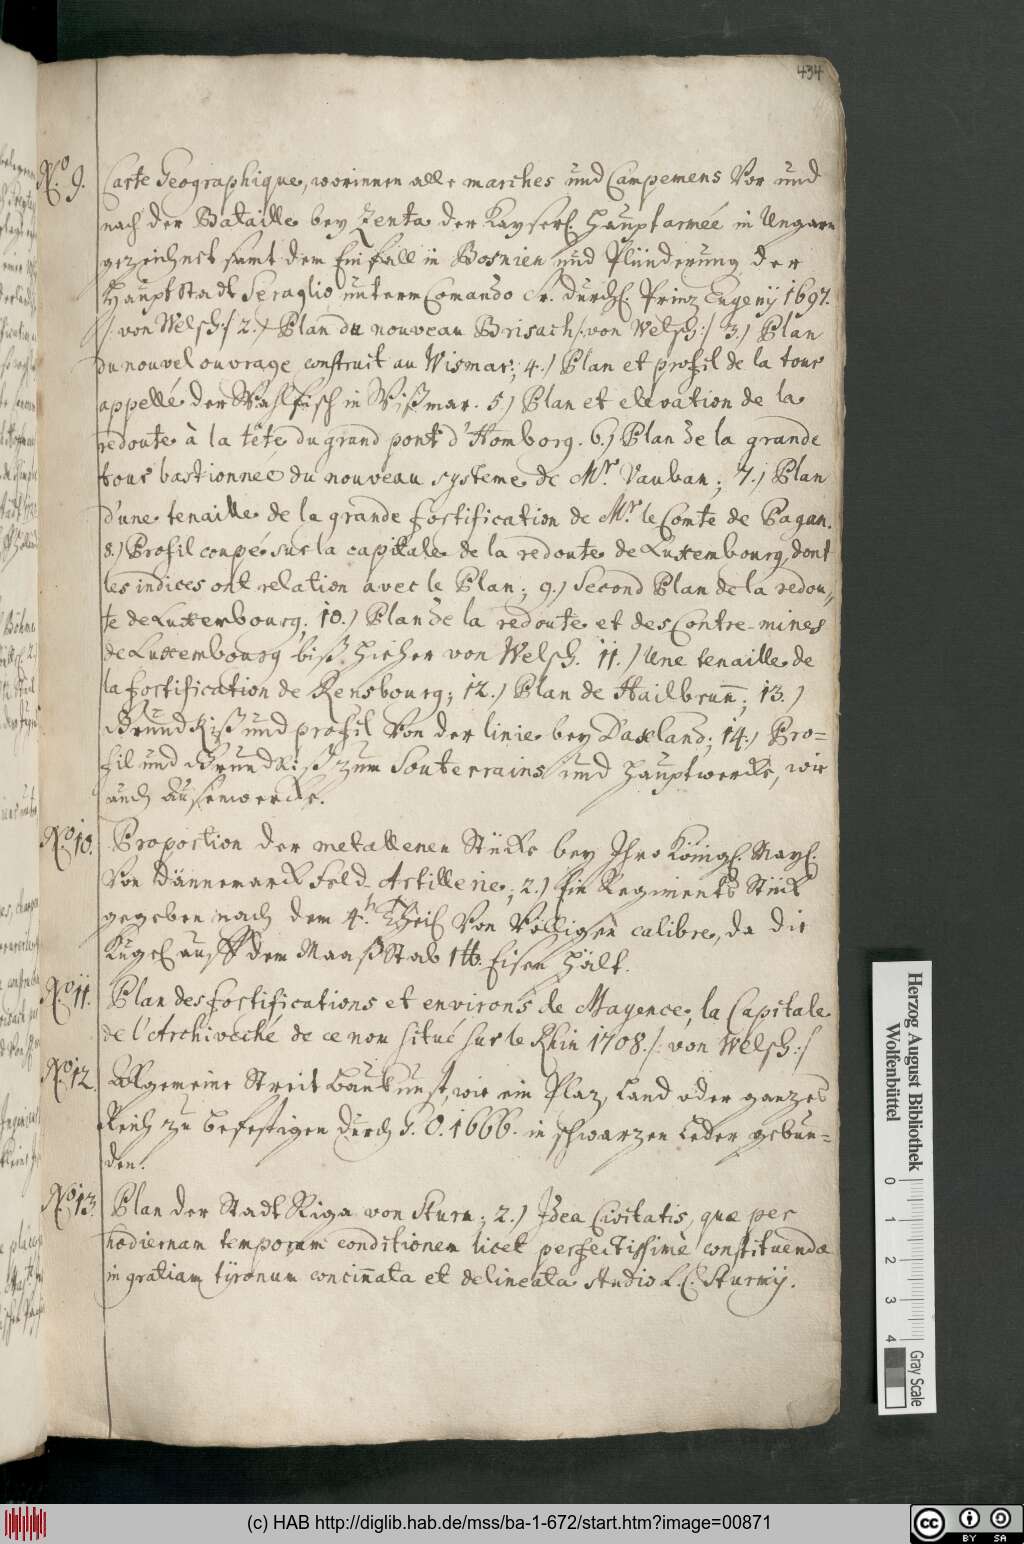 434
No. 9. Carte Geographique, worinnen alle marches und Campemens Vor und
nach der Bataille bey Zenta der Kayserl. Haupt armée in Ungarn
gezeichnet samt dem Einfall in Bosnien und Plünderung der
Haupt Stadt Seraglio unterm Comando Sr. Durchl. Prinz Eugenij 1697.
/: von Welsch :/ 2.) Plan du nouveau Brisach /: von Welsch :/ 3.) Plan
du nouvel ouvrage construit au Wismar; 4.) Plan et profil de la tour
appellé der Wallfisch in Wißmar. 5.) Plan et elevation de la
redoute à la tête du grand pont d'Homborg. 6.) Plan de la grande
tour bastionneé du nouveau systeme de Mr. Vauban; 7.) Plan
d'une tenaille de la grande fortification de Mr. le Comte de Pagan.
8.) Profil coupé sur la capitale de la redoute de Luxembourg, dont
les indices ont relation avec le Plan; 9.) Second Plan de la redou,,
te de Luxembourg; 10.) Plan de la redoute et des Contre-mines
de Luxembourg biß hieher von Welsch. 11.) Une tenaille de
la fortification de Rensbourg; 12.) Plan de Hailbrun̄; 13.)
Grund Riß und profil Von der linie bey Daxland; 14.) Pro=
fil und Grund Riß zum Souterrains und Hauptwercke, wie
auch Ausenwercke.
No. 10. Proportion der metallenen Stücke bey Ihro Königl. Mayl.
Von Dännemarck Feld-Artillerie; 2.) Ein Regiments Stück
gegeben nach dem 4.n Theil Von Völligen calibre, da die
Kugel auff dem Maaß Stab 1 ℔. Eisen hält.
No. 11. Plan des fortifications et environs de Mayence, la Capitale
de l'Archivéché de ce nom situé sur le Rhin 1708. /: von Welsch :/
No. 12. Allgemeine Streit Baukunst, wie ein Plaz, Land oder ganzes
Reich zu befestigen durch G. O. 1666. in schwarzen Leder gebun=
den.
No. 13. Plan der Stadt Riga von Sturm; 2.) Idea Civitatis, quæ per
hodiernam temporum conditionem licet perfectissimè constituendæ
in gratiam tÿronum concin̄ata et delineata studio L. C. Sturmij.
Herzog August Bibliothek
Wolfenbüttel
0 1 2 3 4
Gray Scale
(c) HAB http://diglib.hab.de/mss/ba-1-672/start.htm?image=00871
cc BY SA